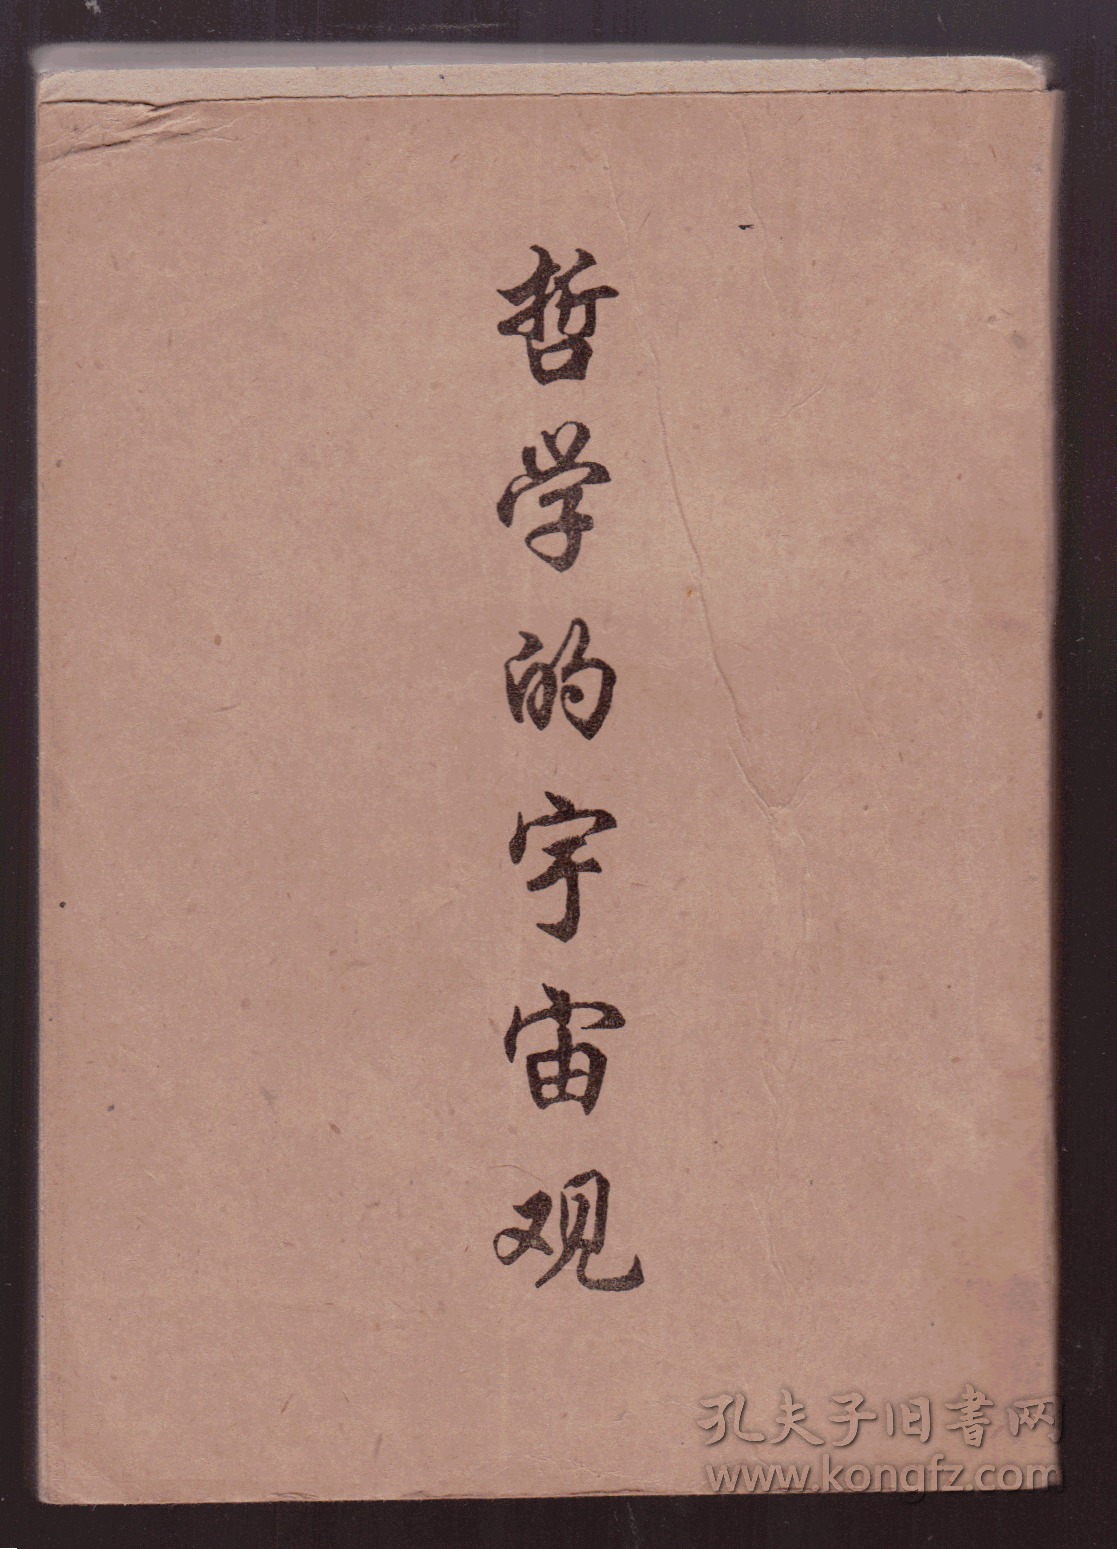 哲学的宇宙观
孔夫子旧書网
www.kongfz.com